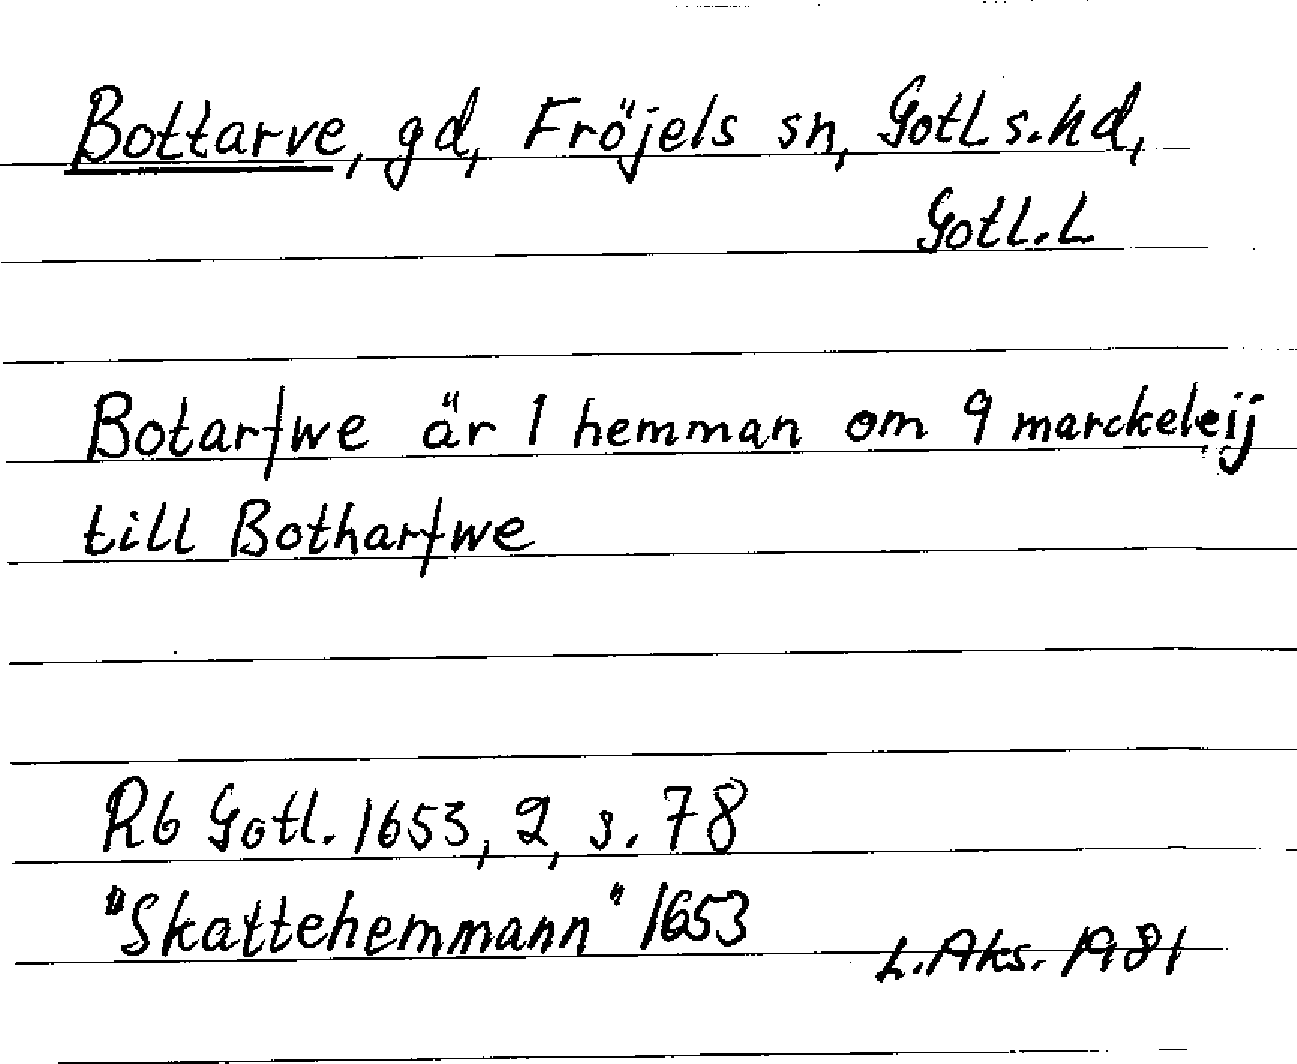 Bottarve, gd, Fröjels sn, Gotl s.hd,
Gotl.L
Botarfwe är 1 hemman om 9 marckeleij
till Botharfwe
Rb Gotl. 1653, 2, s. 78
"Skattehemmann" 1653
L.Aks. 1981